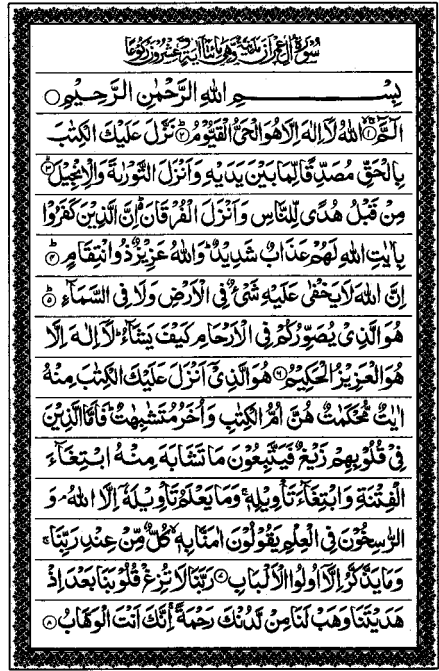 سُوْرَةُ اٰلِ عِمْرٰنَ مَدَنِيَّةٌ وَّهِيَ مِائَتَا اٰيَةٍ وَّعِشْرُوْنَ رُكُوْعًا
بِسْمِ اللهِ الرَّحْمٰنِ الرَّحِيْمِ
الٓمّٓ ۙ﴿۱﴾ اللهُ لَاۤ اِلٰهَ اِلَّا هُوَ الْحَيُّ الْقَيُّوْمُ ؕ﴿۲﴾ نَزَّلَ عَلَيْكَ الْكِتٰبَ
بِالْحَقِّ مُصَدِّقًا لِّمَا بَيْنَ يَدَيْهِ وَاَنْزَلَ التَّوْرٰىةَ وَالْاِنْجِيْلَ ۙ﴿۳﴾
مِنْ قَبْلُ هُدًى لِّلنَّاسِ وَاَنْزَلَ الْفُرْقَانَ ؕ اِنَّ الَّذِيْنَ كَفَرُوْا
بِاٰيٰتِ اللهِ لَهُمْ عَذَابٌ شَدِيْدٌ ؕ وَاللهُ عَزِيْزٌ ذُو انْتِقَامٍ ؕ﴿۴﴾
اِنَّ اللهَ لَا يَخْفٰى عَلَيْهِ شَيْءٌ فِي الْاَرْضِ وَلَا فِي السَّمَآءِ ؕ﴿۵﴾
هُوَ الَّذِيْ يُصَوِّرُكُمْ فِي الْاَرْحَامِ كَيْفَ يَشَآءُ ؕ لَاۤ اِلٰهَ اِلَّا
هُوَ الْعَزِيْزُ الْحَكِيْمُ ﴿۶﴾ هُوَ الَّذِيْۤ اَنْزَلَ عَلَيْكَ الْكِتٰبَ مِنْهُ
اٰيٰتٌ مُّحْكَمٰتٌ هُنَّ اُمُّ الْكِتٰبِ وَاُخَرُ مُتَشٰبِهٰتٌ ؕ فَاَمَّا الَّذِيْنَ
فِيْ قُلُوْبِهِمْ زَيْغٌ فَيَتَّبِعُوْنَ مَا تَشَابَهَ مِنْهُ ابْتِغَآءَ
الْفِتْنَةِ وَابْتِغَآءَ تَاْوِيْلِهٖ ۚ وَمَا يَعْلَمُ تَاْوِيْلَهٗۤ اِلَّا اللهُ ۘ وَ
الرّٰسِخُوْنَ فِي الْعِلْمِ يَقُوْلُوْنَ اٰمَنَّا بِهٖ ۙ كُلٌّ مِّنْ عِنْدِ رَبِّنَا ۚ
وَمَا يَذَّكَّرُ اِلَّاۤ اُولُوا الْاَلْبَابِ ﴿۷﴾ رَبَّنَا لَا تُزِغْ قُلُوْبَنَا بَعْدَ اِذْ
هَدَيْتَنَا وَهَبْ لَنَا مِنْ لَّدُنْكَ رَحْمَةً ۚ اِنَّكَ اَنْتَ الْوَهَّابُ ﴿۸﴾